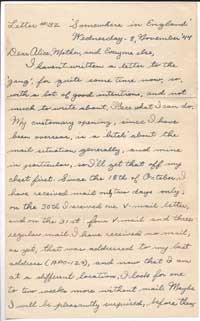 Letter #132 'Somewhere in England'
Wednesday - 8, November '44
Dear Alice, Mother, and Everyone else,
I haven't written a letter to the
'gang' for quite some time now, so,
with a lot of good intentions, and not
much to write about, I'll see what I can do.
My customary opening, since I have
been overseas, is a bitch about the
mail situation generally, and mine
in particular, so I'll get that off my
chest first. Since the 18th of October, I
have received mail on two days only;
on the 30th I received one V-mail letter,
and on the 31st four V-mail and three
regular mail. I have received no mail,
as yet, that was addressed to my last
address (APO-129), and now that I am
at a different location, I look for one
to two weeks more without mail. Maybe
I will be pleasantly surprised, before then